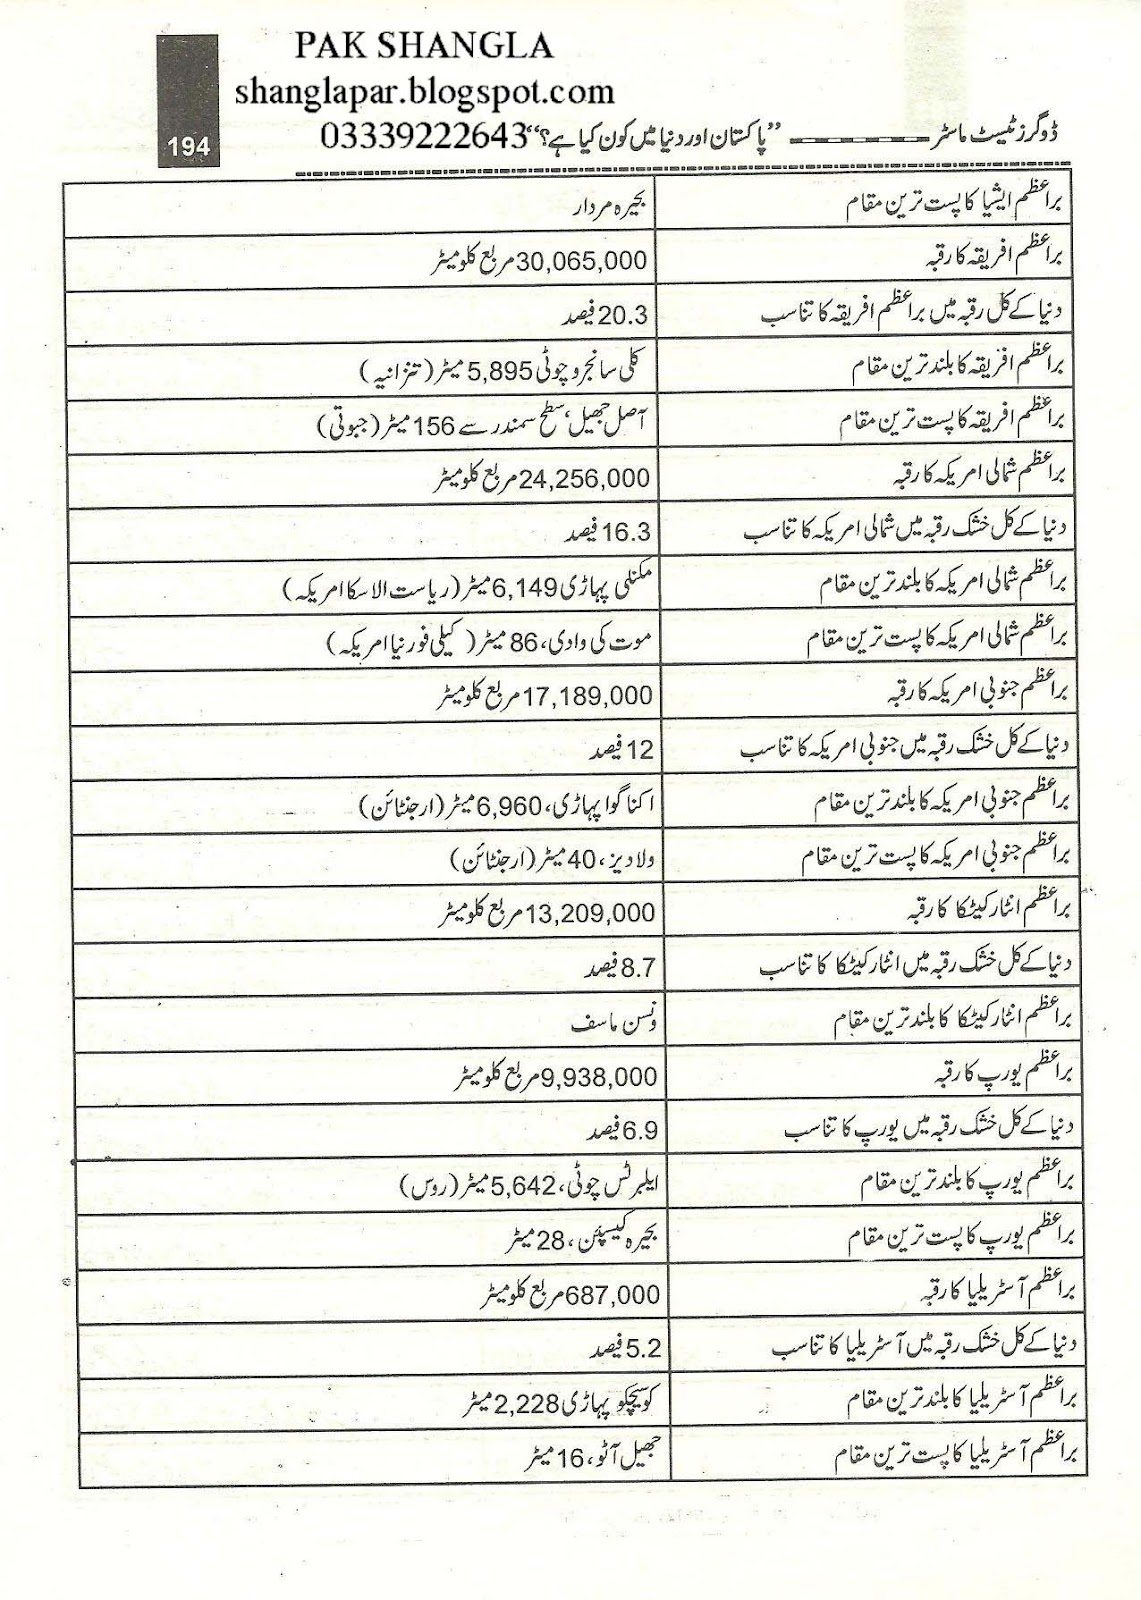 PAK SHANGLA
shanglapar.blogspot.com
03339222643
194
ڈوگرز ٹیسٹ ماسٹر ”پاکستان اور دنیا میں کون کیا ہے؟“
براعظم ایشیا کا پست ترین مقام بحیرہ مردار
براعظم افریقہ کا رقبہ 30,065,000 مربع کلومیٹر
دنیا کے کل رقبہ میں براعظم افریقہ کا تناسب 20.3 فیصد
براعظم افریقہ کا بلند ترین مقام کلی سانجرو چوٹی 5,895 میٹر (تنزانیہ)
براعظم افریقہ کا پست ترین مقام آصل جھیل، سطح سمندر سے 156 میٹر (جبوتی)
براعظم شمالی امریکہ کا رقبہ 24,256,000 مربع کلومیٹر
دنیا کے کل خشک رقبہ میں شمالی امریکہ کا تناسب 16.3 فیصد
براعظم شمالی امریکہ کا بلند ترین مقام مکنلی پہاڑی 6,149 میٹر (ریاست الاسکا امریکہ)
براعظم شمالی امریکہ کا پست ترین مقام موت کی وادی، 86 میٹر (کیلی فورنیا امریکہ)
براعظم جنوبی امریکہ کا رقبہ 17,189,000 مربع کلومیٹر
دنیا کے کل خشک رقبہ میں جنوبی امریکہ کا تناسب 12 فیصد
براعظم جنوبی امریکہ کا بلند ترین مقام اکناگوا پہاڑی، 6,960 میٹر (ارجنٹائن)
براعظم جنوبی امریکہ کا پست ترین مقام ولادیز، 40 میٹر (ارجنٹائن)
براعظم انٹارکیٹکا کا رقبہ 13,209,000 مربع کلومیٹر
دنیا کے کل خشک رقبہ میں انٹارکیٹکا کا تناسب 8.7 فیصد
براعظم انٹارکیٹکا کا بلند ترین مقام ونسن ماسف
براعظم یورپ کا رقبہ 9,938,000 مربع کلومیٹر
دنیا کے کل خشک رقبہ میں یورپ کا تناسب 6.9 فیصد
براعظم یورپ کا بلند ترین مقام ایلبرٹس چوٹی، 5,642 میٹر (روس)
براعظم یورپ کا پست ترین مقام بحیرہ کیسپئن، 28 میٹر
براعظم آسٹریلیا کا رقبہ 687,000 مربع کلومیٹر
دنیا کے کل خشک رقبہ میں آسٹریلیا کا تناسب 5.2 فیصد
براعظم آسٹریلیا کا بلند ترین مقام کوسیچکو پہاڑی 2,228 میٹر
براعظم آسٹریلیا کا پست ترین مقام جھیل آئو، 16 میٹر